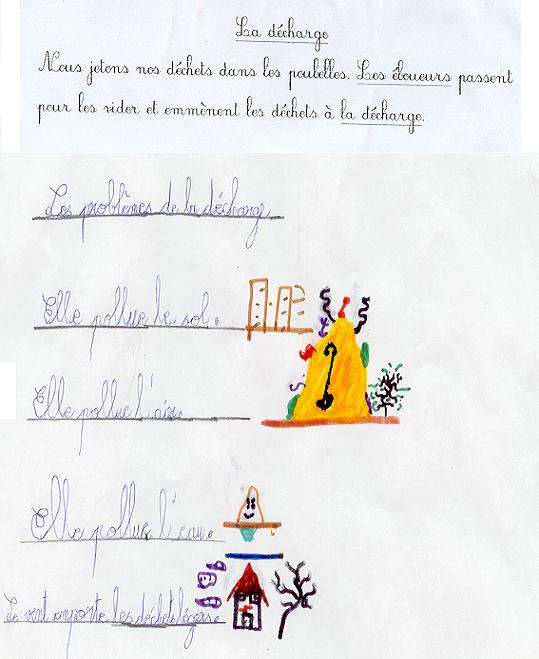 La décharge
Nous jetons nos déchets dans les poubelles. Les éboueurs passent
pour les vider et emmènent les déchets à la décharge.
Les problèmes de la décharge
Elle pollue le sol.
Elle pollue l'air.
Elle pollue l'eau.
Le vent emporte les déchets légers.